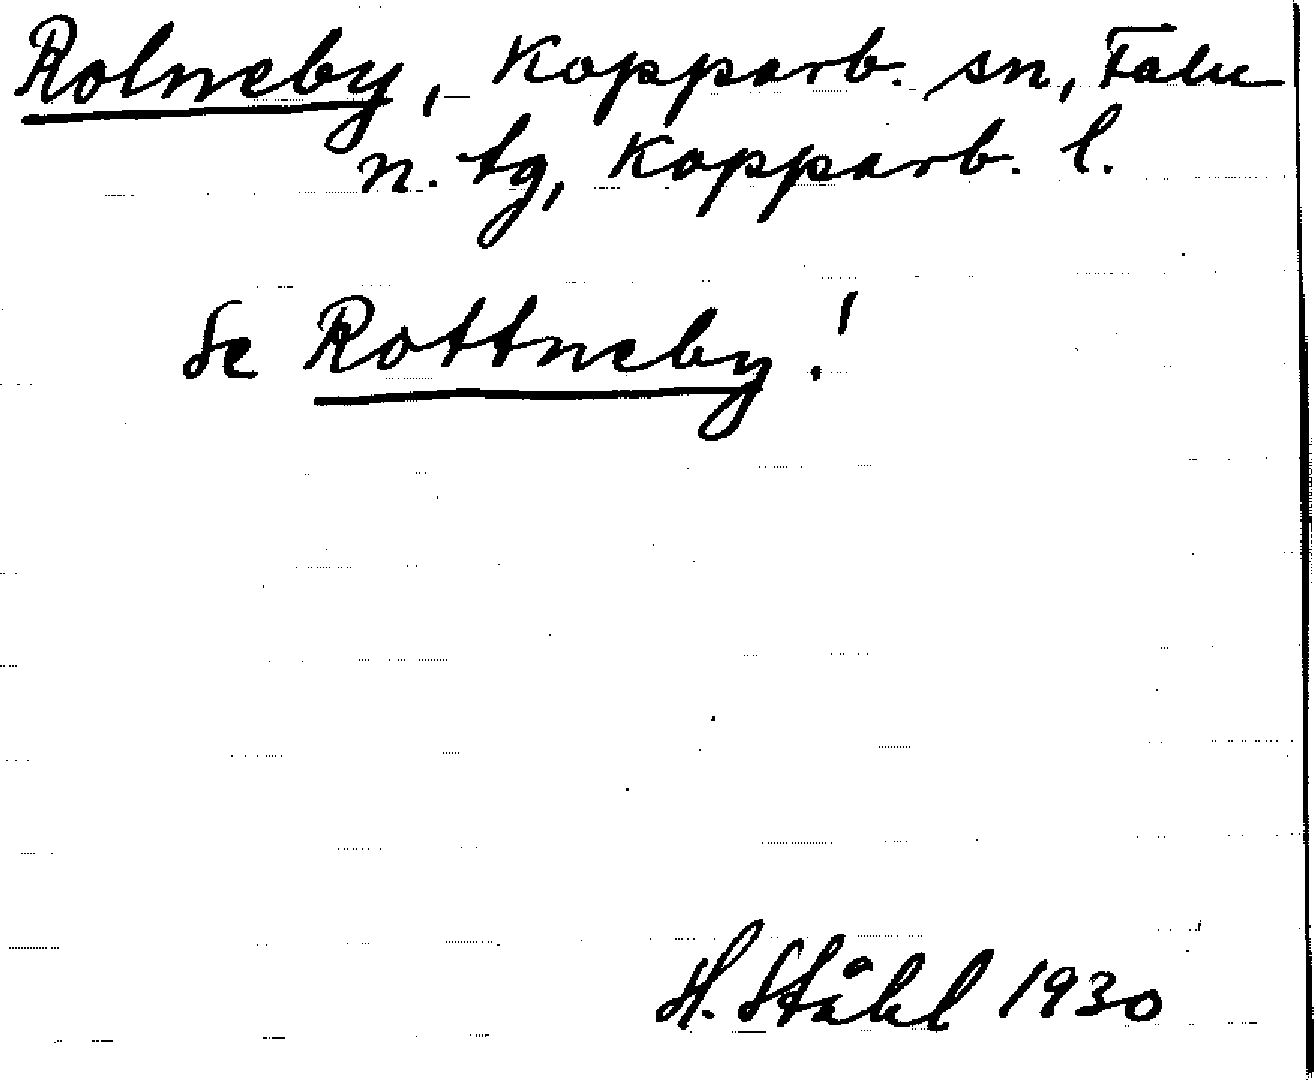 Rolneby, Kopparb. sn, Falu
n. tg, Kopparb. l.
Se Rottneby!
H. Ståhl 1930